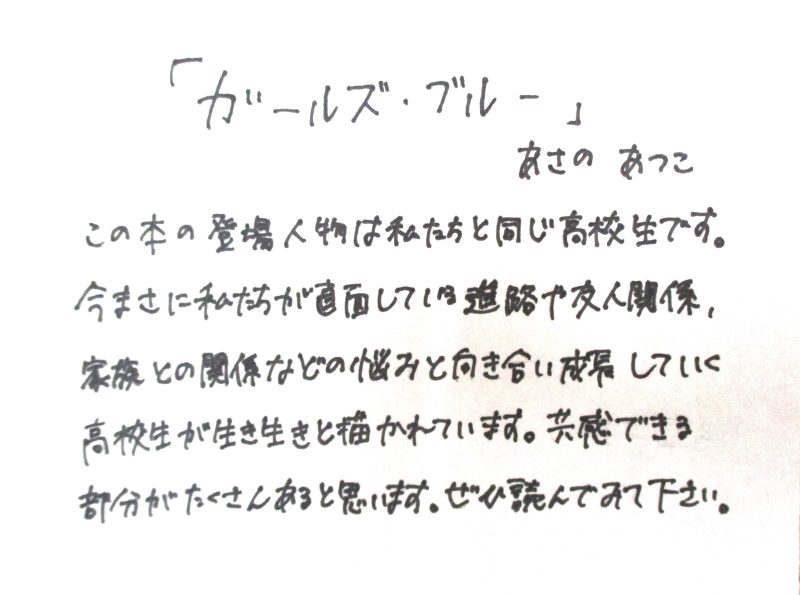 「ガールズ・ブルー」
あさの あつこ
この本の登場人物は私たちと同じ高校生です。
今まさに私たちが直面している進路や友人関係、
家族との関係などの悩みと向き合い成長していく
高校生が生き生きと描かれています。共感できる
部分がたくさんあると思います。ぜひ読んでみて下さい。